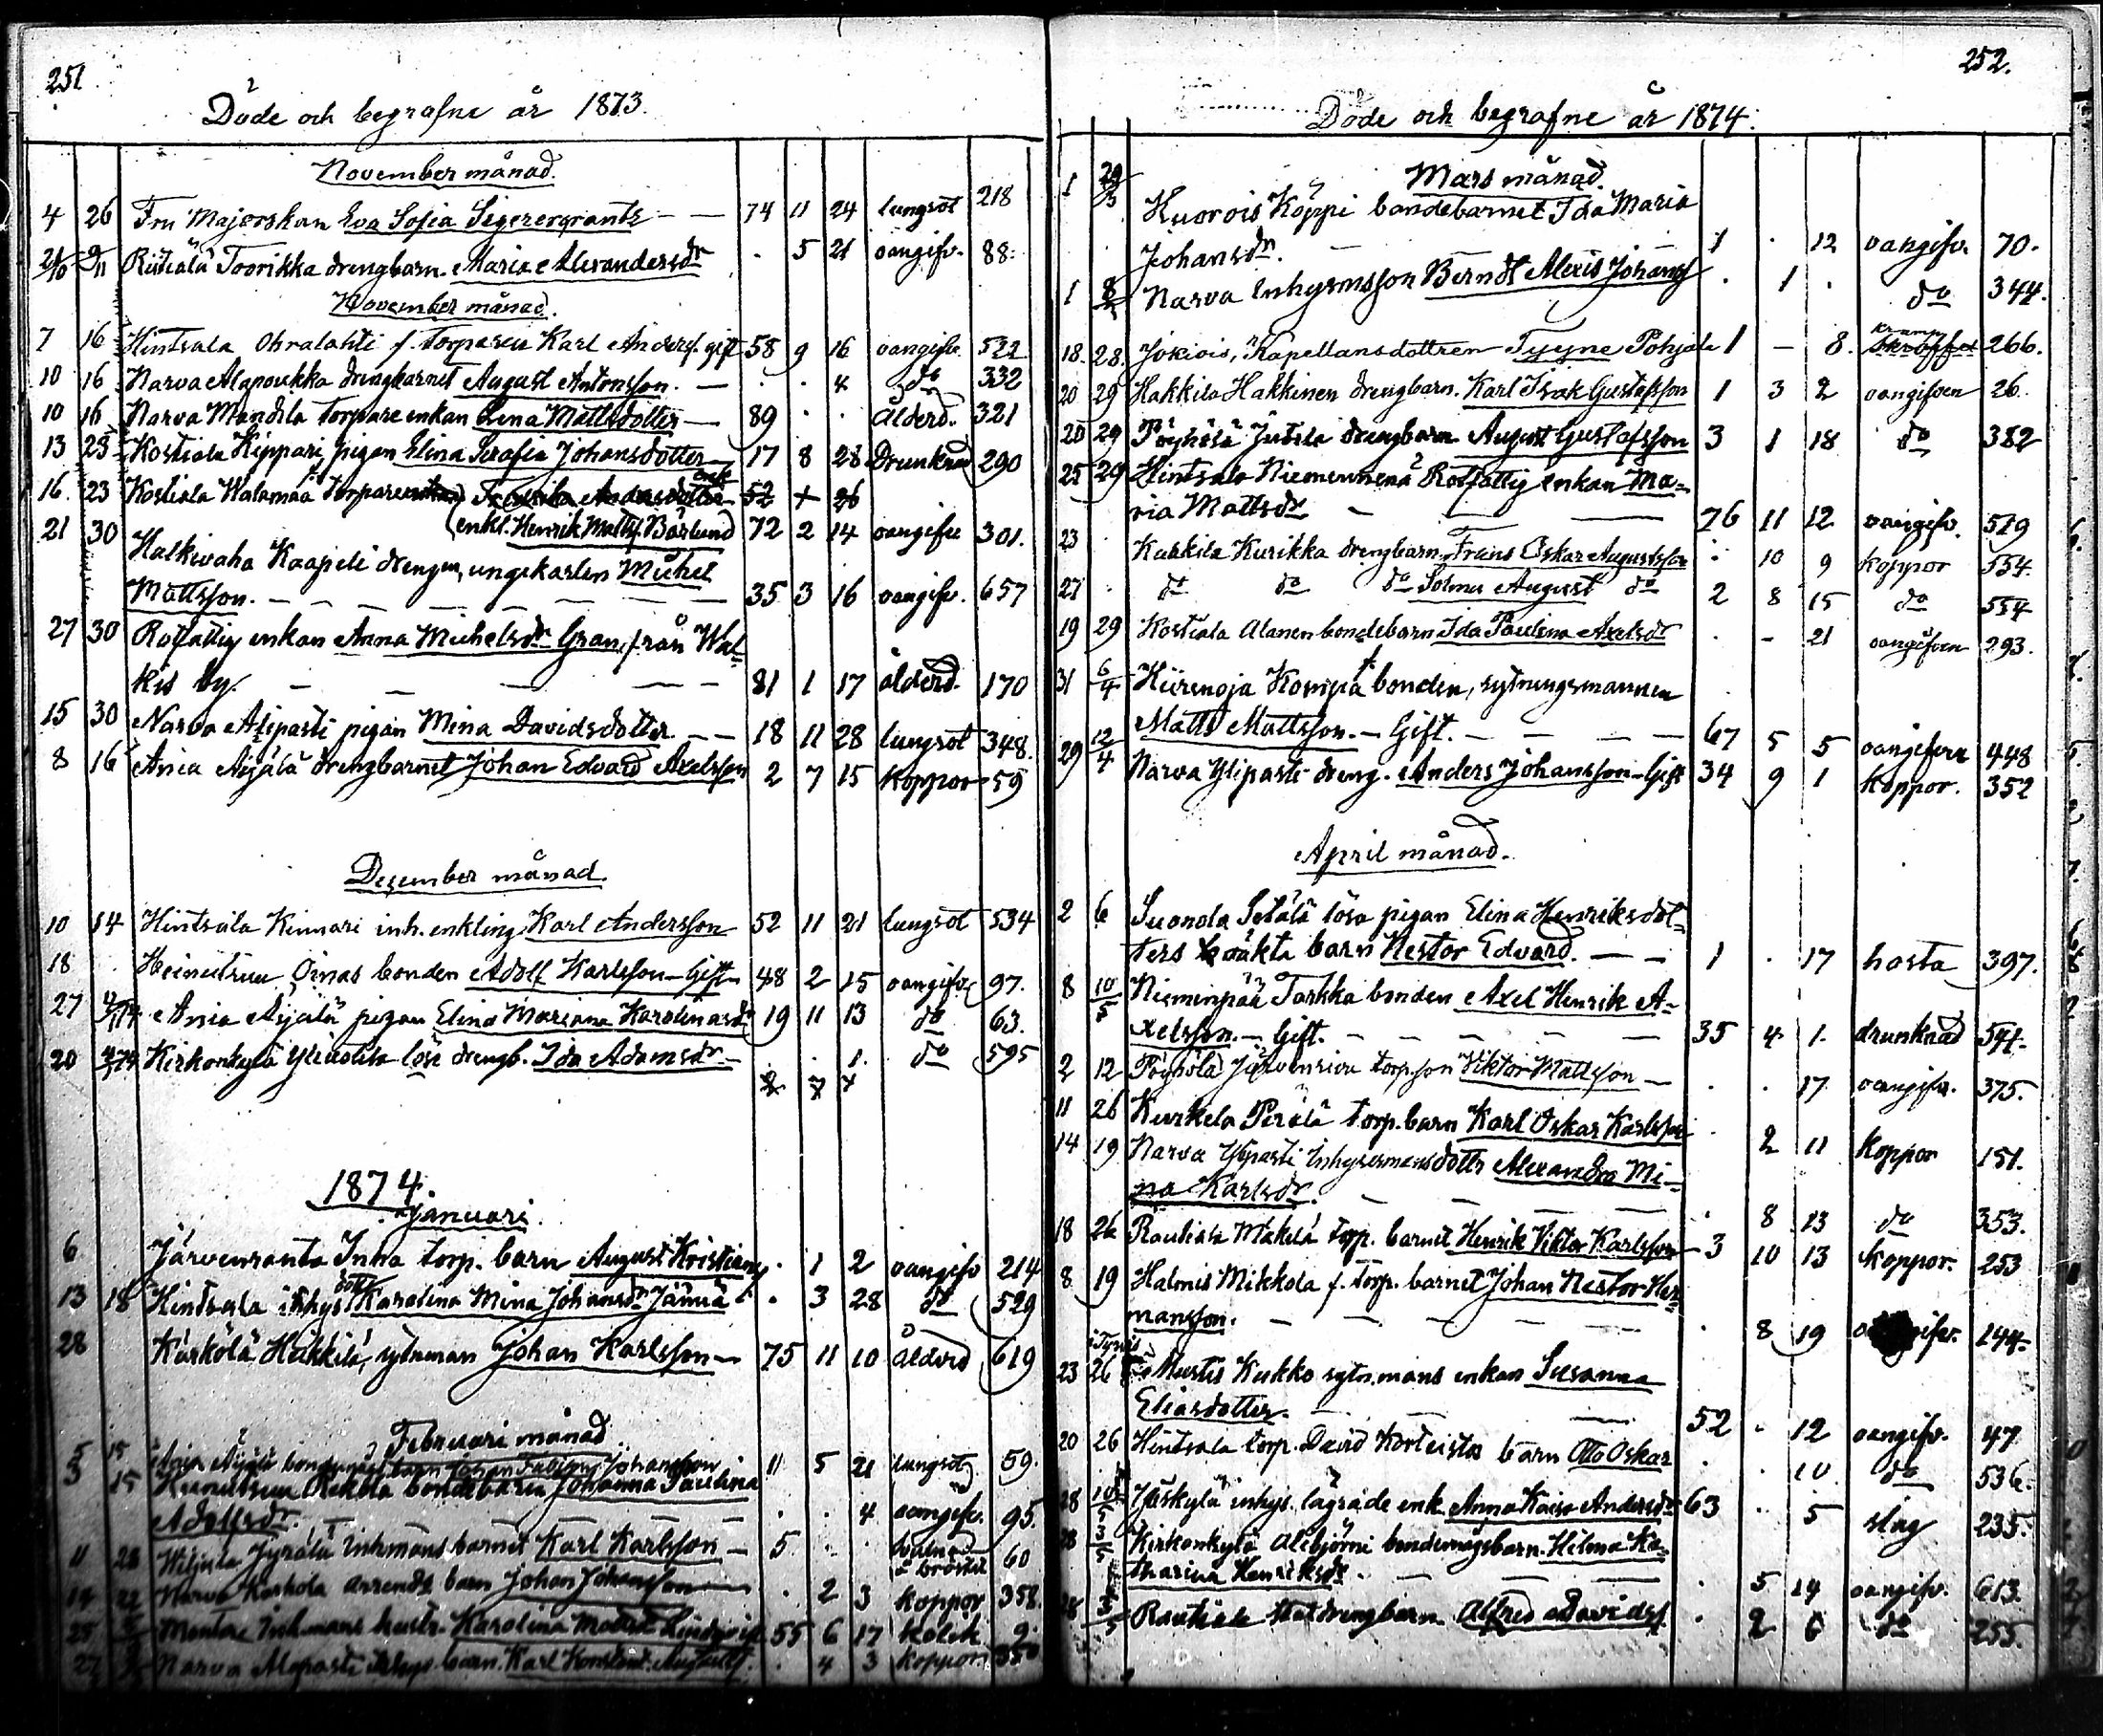 251
Döde och begrafne år 1873.
November månad.
4 26 Fru Majorskan Eva Sofia — — 74 11 24 lungsot 218
21/10 9/11 Riitiälä Toorikka drengbarn. Maria Alexandersdr . 5 21 oangifv. 88.
November månad.
7 16 Hintsala Ohralahti f. torparen Karl Anders. gift 58 9 16 oangifv. 522
10 16 Narva Alapoukka drengbarnet August Antonsson. — . . 4 do 332
10 16 Narva Mandila torpare enkan Lena Mattsdotter — 89 . . Ålderd. 321
13 23 Kostiala Kippari pigan Elina Serafia Johansdotter — 17 8 28 Drunknad 290
16. 23 Kostiala Walamaa torpare
(enkl. Henrik Mattss. Bärlund) 72 2 14 oangifv 301.
21 30 Halkivaha Kaapeli drengen, ungekarlen Michel
Mattsson. — — — 35 3 16 oangifv. 657
27 30 Rotfattig enkan Anna Michelsdr Gran, från Wal-
kis by. — — — 81 1 17 ålderd. 170
15 30 Narva Alipasti pigan Mina Davidsdotter. — — 18 11 28 lungsot 348.
8 16 Ania Äijälä drengbarnet Johan Edvard Axelsson 2 7 15 koppor 59
December månad.
10 14 Hintsala Kinnari inh. enkling. Karl Andersson 52 11 21 lungsot 534
18 . Heinutruu Oinas bonden Adolf Karlsson — Gift — 48 2 15 oangifv. 97.
27 4/1 74 Ania Äijälä pigan Elina Mariana Karolinasdr 19 11 13 do 63.
20 4/1 74 Kirkonkylä löse drengb. Ida Adamsdr — . . 1. do 595
1874.
Januari.
6 Järvenranta Inna torp. barn August Kristians . 1 2 oangifv 214
13 18 Hintsala inhys dott Karolina Mina Johansdr . 3 28 do 529
28 Kärkölä Hakkila, sytnman Johan Karlsson — 75 11 10 ålderd 619
Februari månad
5 15 Ania Äijälä Johansson 11 5 21 lungsot 59.
3 15 bondebarn Johanna Paulina
Adolfsdr. — — — . . 4 oangifv. 95.
11 Jyrälä Inhmans barnet Karl Karlsson — 5 . . 60
14 22 Narva Karhola arrends barn Johan Johansson — . 2 3 koppor 358.
25 Inhmans hustr. Karolina 55 6 17 kolik 9.
27 Narva Alapasti inhys. barn. Karl . 4 3 koppor
252.
Döde och begrafne år 1874.
Mars månad.
1 29/3 Huorois Köppi bondebarnet Ida Maria
Johansdr. — — 1 . 12 oangifv. 70.
1 8 Narva Inhysmsson Berndt Alexis Johanss . 1 . do 344.
18. 28. Jokiois, Kapellansdottren Tyyne Pohjala 1 — 8. kramp 266.
20 29 Hakkila Hakkinen drengbarn. Karl Isak Gustafsson 1 3 2 oangifven 26.
20 29 Pöyhölä Jutila drengbarn August Gustafsson 3 1 18 do 382
25 29 Hintsala Rotfattig enkan Ma-
ria Mattsdr — — 76 11 12 oangifv. 519
23 Kahkila Kurikka drengbarn. Frans Oskar Augustsson . 10 9 koppor 554.
27 . do do do Solmu August do 2 8 15 do 554
19 29 Kostiala Alanen bondebarn Ida Paulina Axelsdr . — 21 oangifven 293.
31 6/4 Hiirenoja Kompa f. bonden, sytningsmannen
Matts Mattsson. — Gift. — — — 67 5 5 oangifven 448
29 12/4 Narva Ylipasti dreng. Anders Johansson — Gift 34 9 1 koppor. 352
April månad.
2 6 Suonola Setälä lösa pigan Elina Henriksdot-
ters oäkta barn Nestor Edvard. — — 1 . 17 hosta 397.
8 10/5 Nieminpää Tarkka bonden Axel Henrik A-
xelsson. — Gift. — — — 35 4. 1. drunknad 541.
2 12 Pöyhölä torpson Viktor Mattsson — . . 17 oangifv. 375.
11 26 Kurkela Perälä torp. barn Karl Oskar Karlsson . 2 11 koppor 151.
14 19 Narva Ylipasti Inhysesmansdottr Alexandra Mi-
na Karlsdr. — — — . 8 13 do 353.
18 26 Rautiala Mäkelä torp. barnet Henrik Viktor Karlsson 3 10 13 koppor. 253
8 19 Halmis Mikkola f. torp. barnet Johan Nestor Her-
mansson. — — — . 8 19 144.
23 26 Mustis Kukko sytn.mans enkan Susanna
Eliasdotter. — — 52 . 12 oangifv. 47
20 26 Hintsala torp. David barn Otto Oskar . . 10 do 536.
28 10/5 Jäskylä inhys. lägrade enk. Anna Kaisa Andersdr 63 . 5 slag 235.
28 3/5 Kirkonkylä Alibjörni bondemågsbarn. Hilma Ka-
tharina Henriksdr. — — — . 5 14 oangifv. 613.
28 3/5 Rautiala Statdrengbarn Alfred Davidss. . 2 6 do 255.